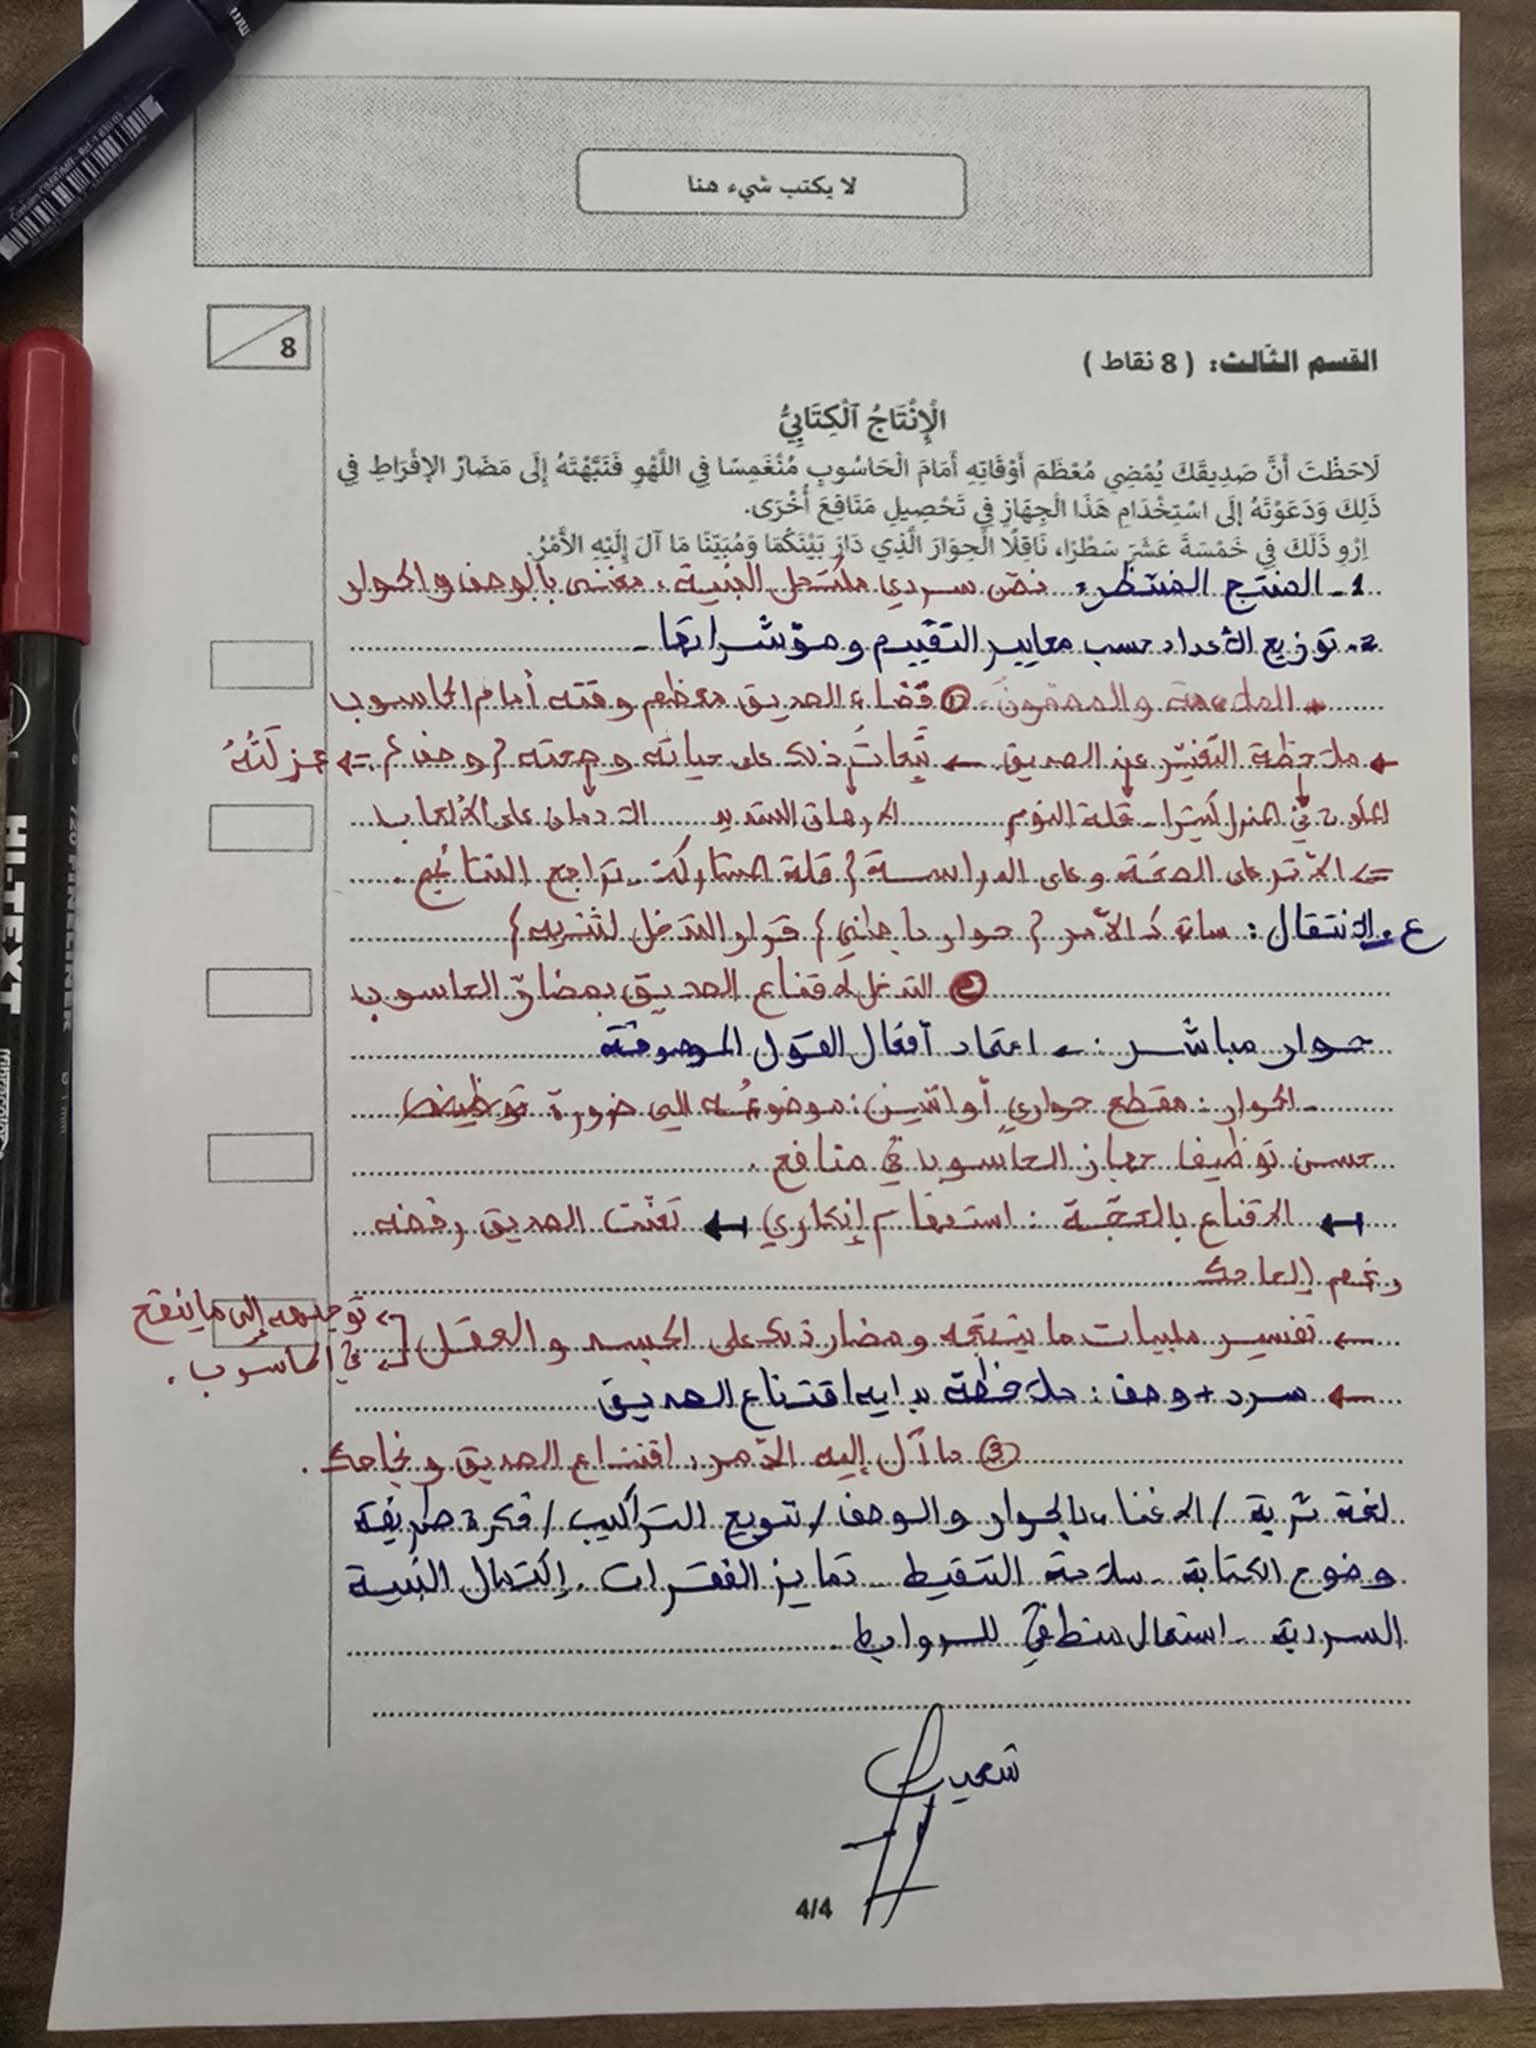 لا يكتب شيء هنا
8
القسم الثّالث: ( 8 نقاط )
الْإِنْتَاجُ ٱلْكِتَابِيُّ
لَاحَظْتَ أَنَّ صَدِيقَكَ يُمْضِي مُعْظَمَ أَوْقَاتِهِ أَمَامَ الْحَاسُوبِ مُنْغَمِسًا فِي اللَّهْوِ فَنَبَّهْتَهُ إِلَى مَضَارِّ الإِفْرَاطِ فِي
ذَلِكَ وَدَعَوْتَهُ إِلَى اسْتِخْدَامِ هَذَا الْجِهَازِ فِي تَحْصِيلِ مَنَافِعَ أُخْرَى.
اِرْوِ ذَلِكَ فِي خَمْسَةَ عَشَرَ سَطْرًا، نَاقِلًا الْحِوَارَ الَّذِي دَارَ بَيْنَكُمَا وَمُبَيِّنًا مَا آلَ إِلَيْهِ الأَمْرُ.
1 - المنتج المنتظر: نصّ سردي مكتمل البنية، مغنى بالوصف والحوار
2 - توزيع الأعداد حسب معايير التقييم ومؤشراتها -
الملاءمة والمضمون: ① قضاء الصديق معظم وقته أمام الحاسوب
← ملاحظة التغيّر عند الصديق ← تَبِعاتُ ذلك على حياته وصحته { وصف } ⇐ عزلَتُهُ
في المنزل كثيرا - قلة النوم الإرهاق الشديد الإدمان على الألعاب
⇐ الأثر على الصحّة وعلى الدراسة { قلة المشاركة - تراجع النتائج .
ع. الانتقال: ساءك الأمر { حوار باطني } قرار التدخل لثنيه }
② التدخل لإقناع الصديق بمضارّ الحاسوب
حوار مباشر: ← اعتماد أفعال القول الموصوفة
- الحوار: مقطع حواري أو اثنين: موضوعُه إلى ضرورة توظيف
حسن توظيف جهاز الحاسوب في منافع .
← الإقناع بالحجّة: استفهام إنكاري ← تعنّت الصديق رفضه
رغم إلحاحك
← تفسير سلبيات ما ينتجه ومضار ذلك على الجسد والعقل [ ← توجيهه إلى ما ينفع
← في الحاسوب .
← سرد + وصف: ملاحظة بداية اقتناع الصديق
③ ما آل إليه الأمر، اقتناع الصديق ونجاحك .
لغة ثرية / الإغناء بالحوار والوصف / تنويع التراكيب / فكرة طريفة
وضوح الكتابة - سلامة التنقيط - تمايز الفقرات . إكتمال البنية
السردية - استعمال منطقي للروابط
4/4
HI-TEXT
720 FINELINER